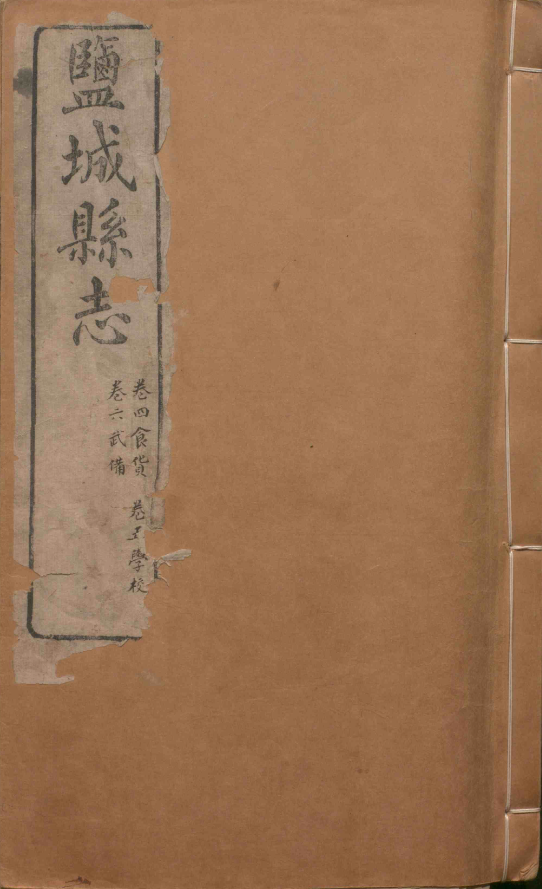 鹽城縣志
卷四食貨 卷五學校
卷六武備